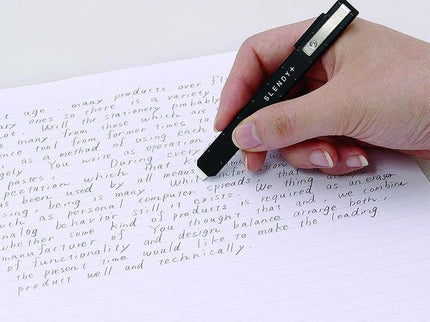 t age . many products over fl
ary ones so there is a variety
. Will the stationery probably
s many from those which are
ence tool from former times to
gely as a method of using each
pastes . You write as operation
ectation During every
as been used which that k
sing, being by all meas information
ch as personal many. Wh which
nalog behavior computer spreads that
whether some still it exists. We thing as an eraser
manufacturer kind of products is required
of functionality of You thought that and, we combine
the present time and design balance arrange both,
product well and would like to make the leading
technically.
SLENDY+